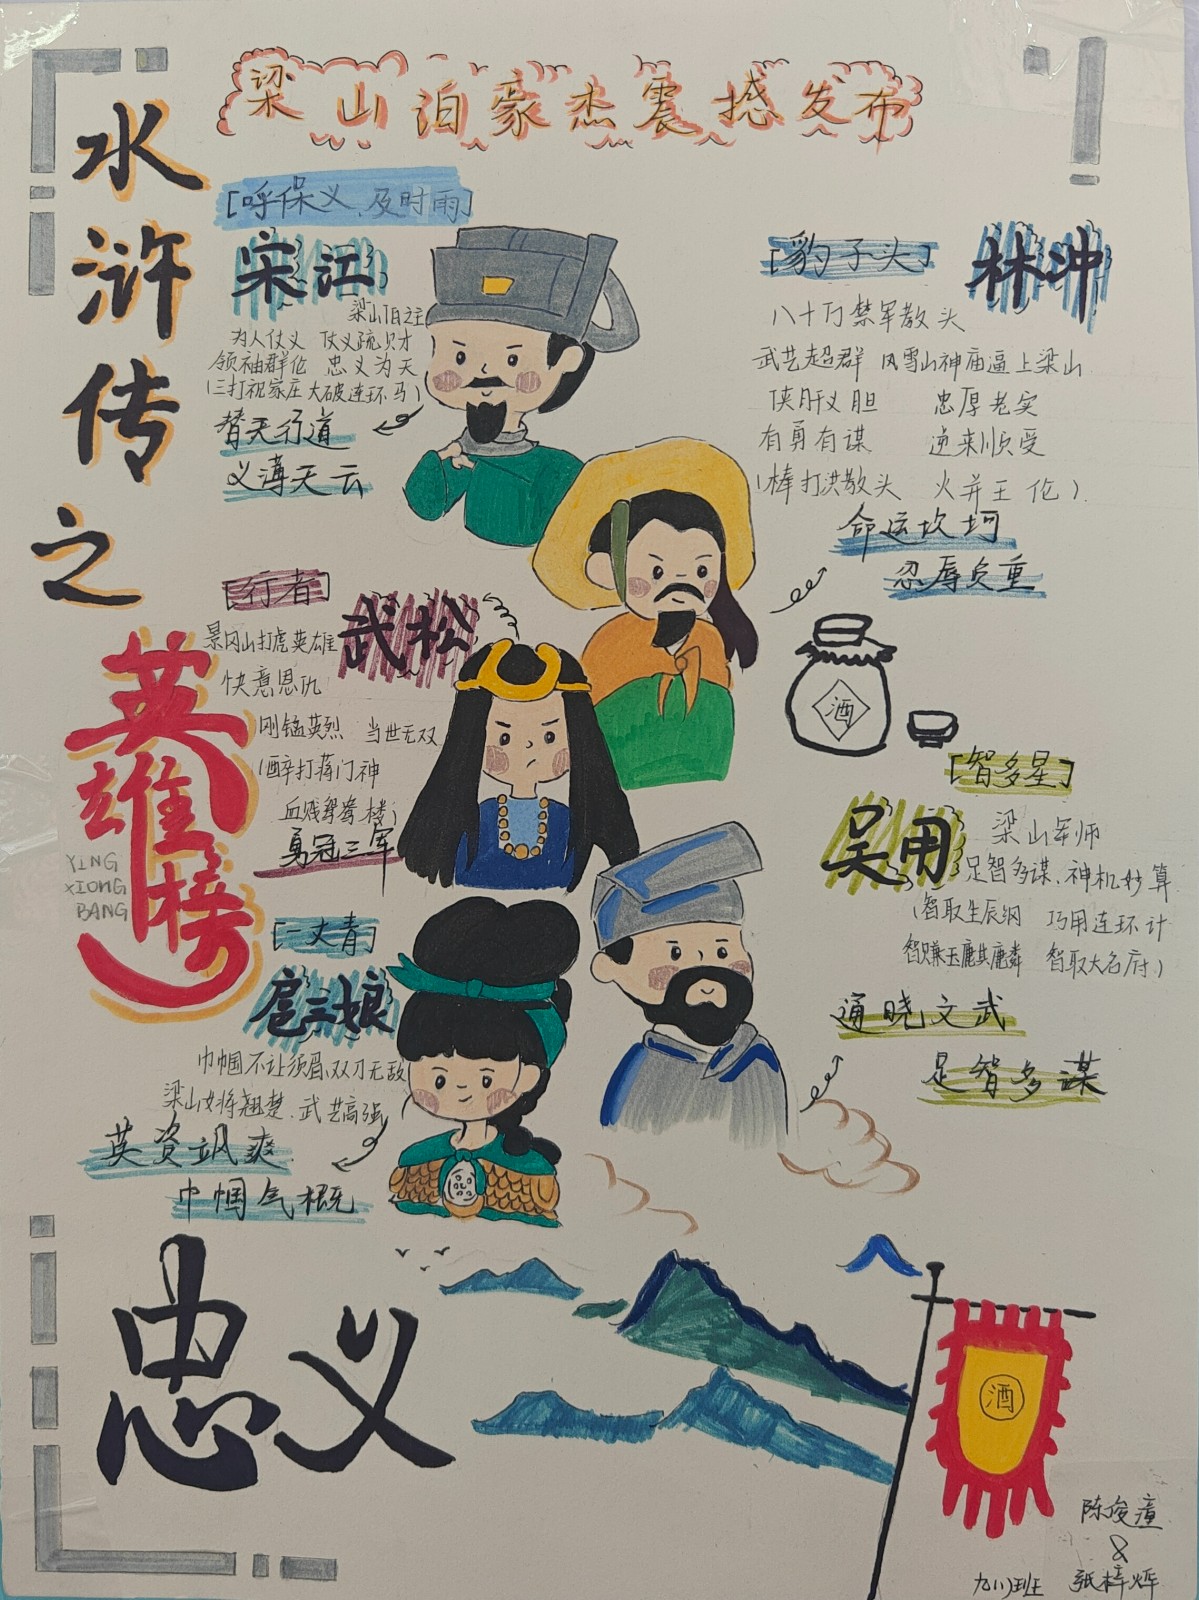 梁山泊豪杰震撼发布
水浒传之
英雄榜
YING
XIONG
BANG
[呼保义、及时雨]
宋江
梁山泊之主
为人仗义 仗义疏财
领袖群伦 忠义为天
(三打祝家庄 大破连环马)
替天行道
义薄天云
[豹子头] 林冲
八十万禁军教头
武艺超群 风雪山神庙逼上梁山
侠肝义胆 忠厚老实
有勇有谋 逆来顺受
(棒打洪教头 火并王伦)
命运坎坷
忍辱负重
[行者]
武松
景冈山打虎英雄
快意恩仇
刚猛英烈 当世无双
(醉打蒋门神
血溅鸳鸯楼)
勇冠三军
酒
[智多星]
吴用
梁山军师
足智多谋、神机妙算
(智取生辰纲 巧用连环计
智赚玉麒麟 智取大名府)
通晓文武
足智多谋
[一丈青]
扈三娘
巾帼不让须眉、双刀无敌
梁山女将翘楚、武艺高强
英姿飒爽
巾帼气概
忠义
酒
陈俊
&
九(1)班 张梓烨